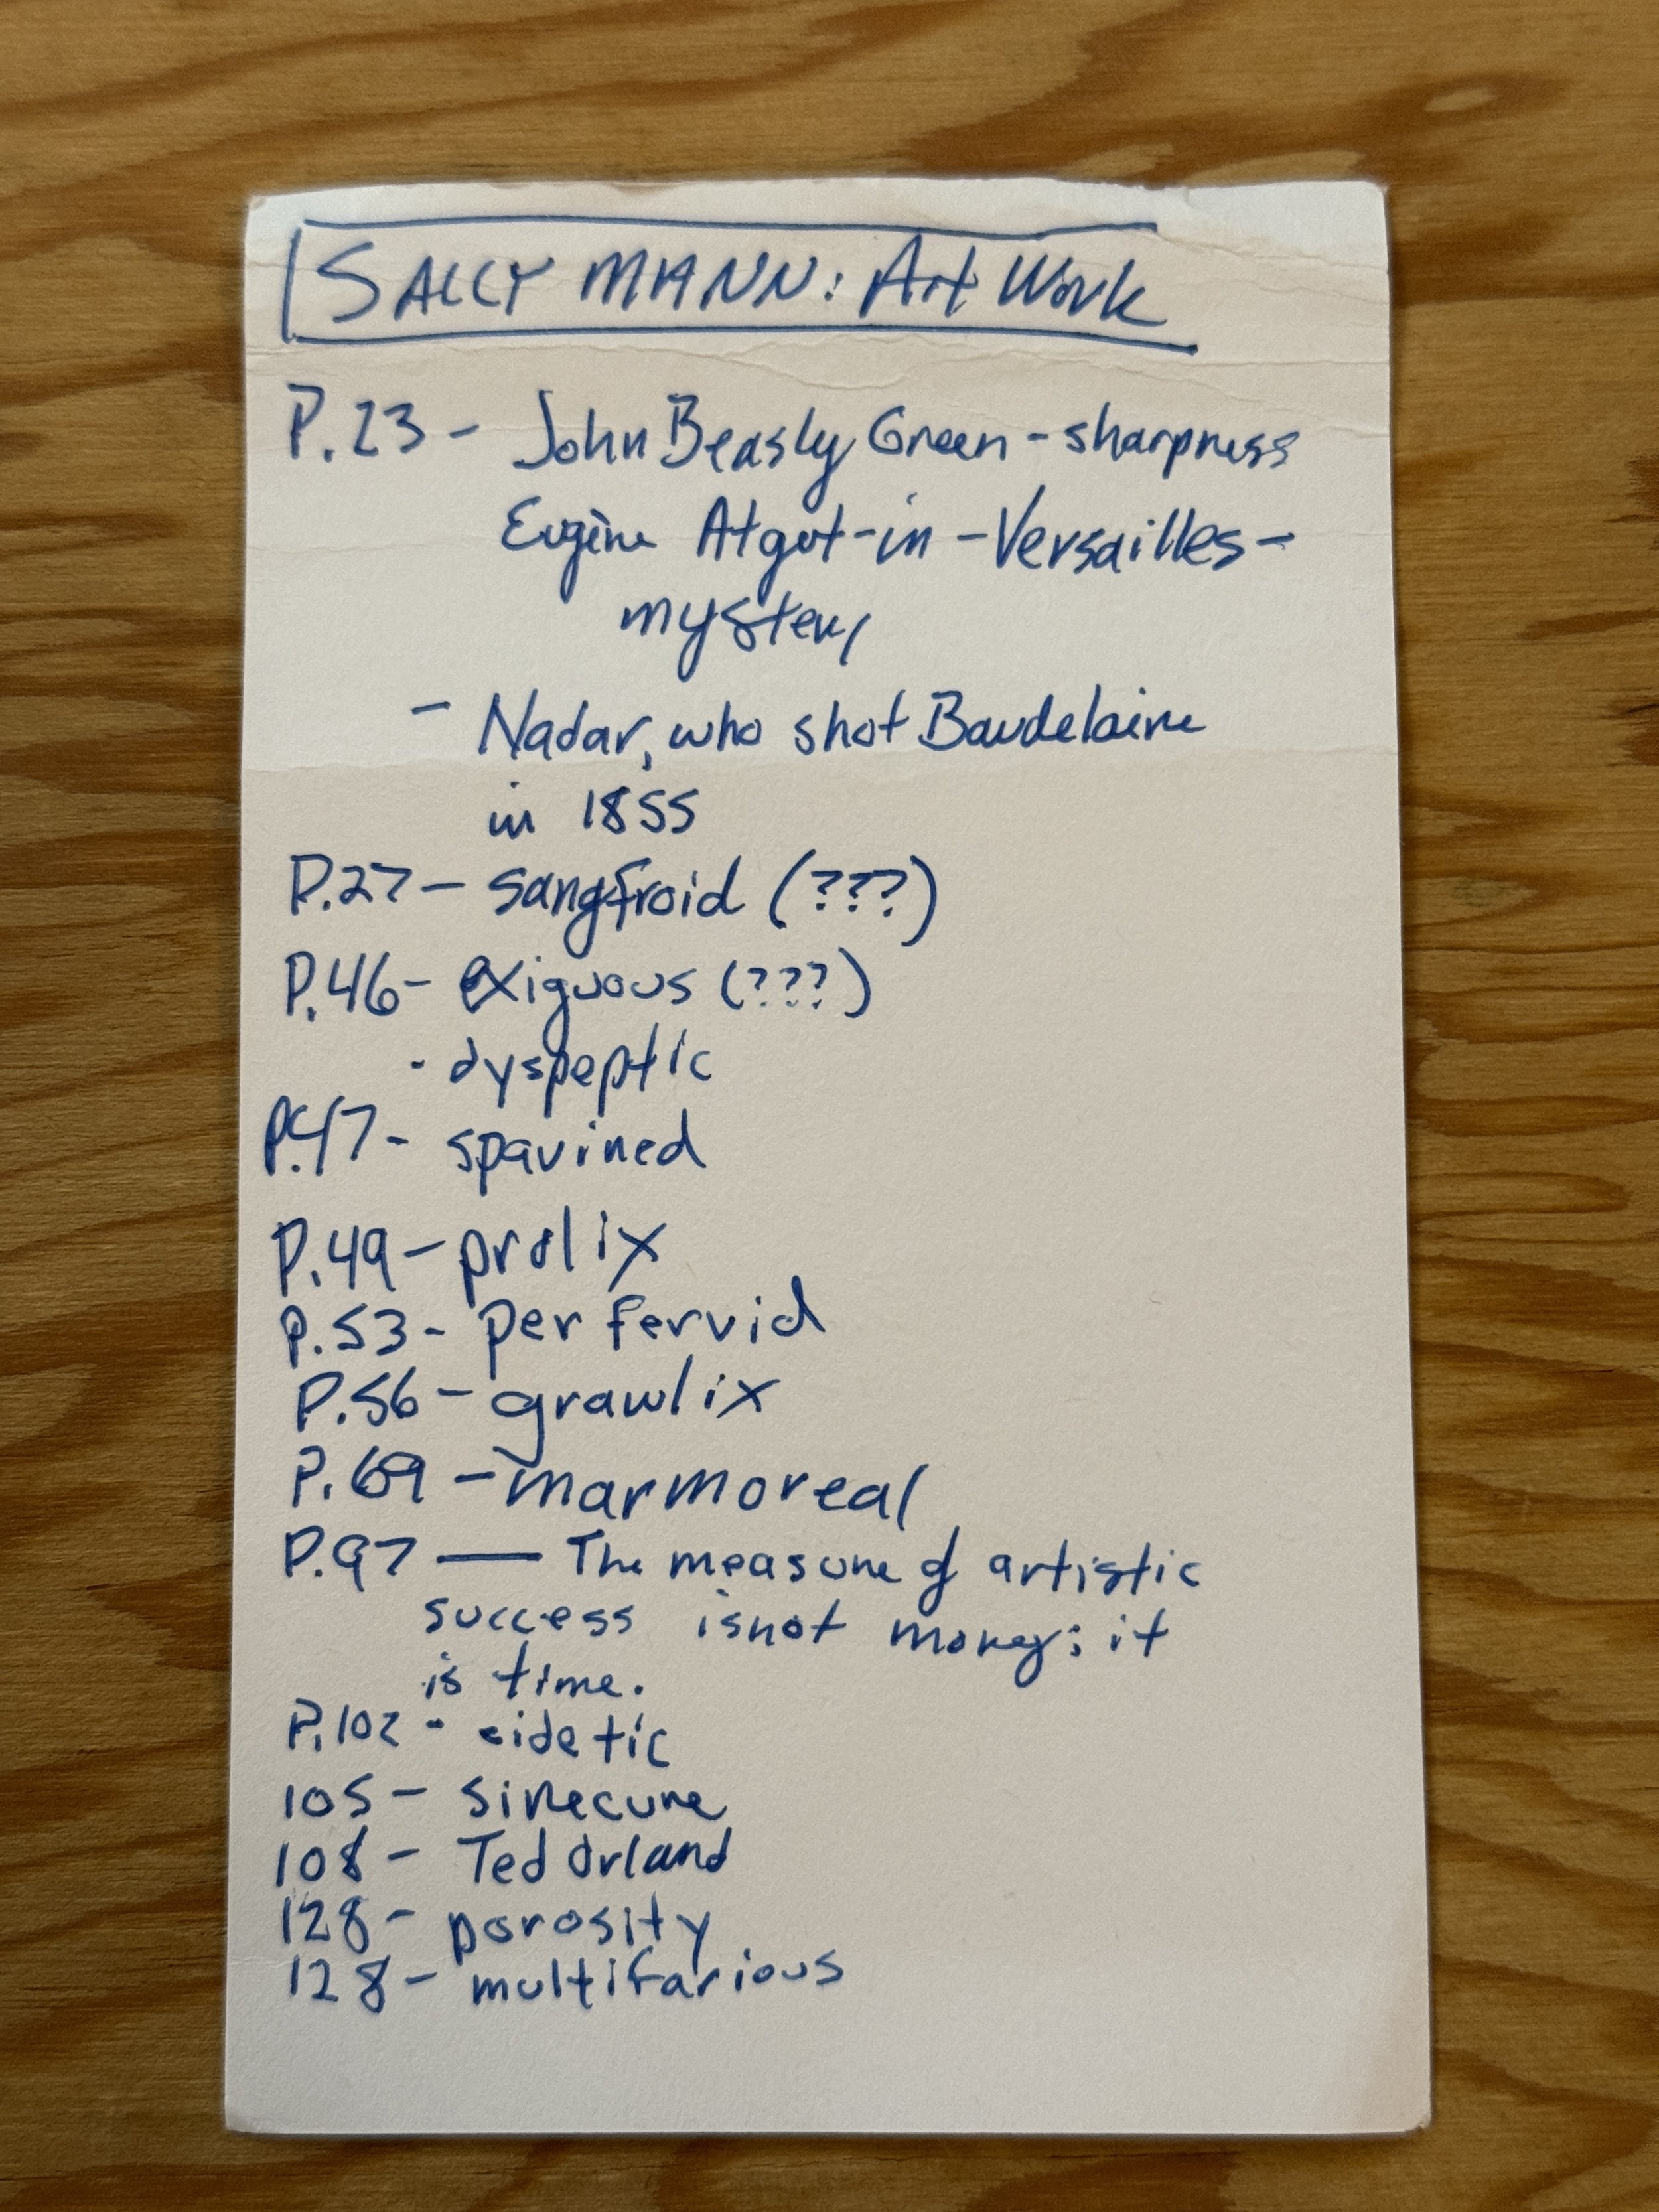 SALLY MANN: Art Work
P.23 - John Beasly Green - sharpness
Eugène Atget-in-Versailles-
mystery
- Nadar, who shot Baudelaire
in 1855
P.27 - sangfroid (???)
P.46 - exiguous (???)
· dyspeptic
P.47 - spavined
P.49 - prolix
P.53 - perfervid
P.56 - grawlix
P.69 - marmoreal
P.97 — The measure of artistic
success is not money; it
is time.
P.102 - eidetic
105 - sinecure
108 - Ted Orland
128 - porosity
128 - multifarious